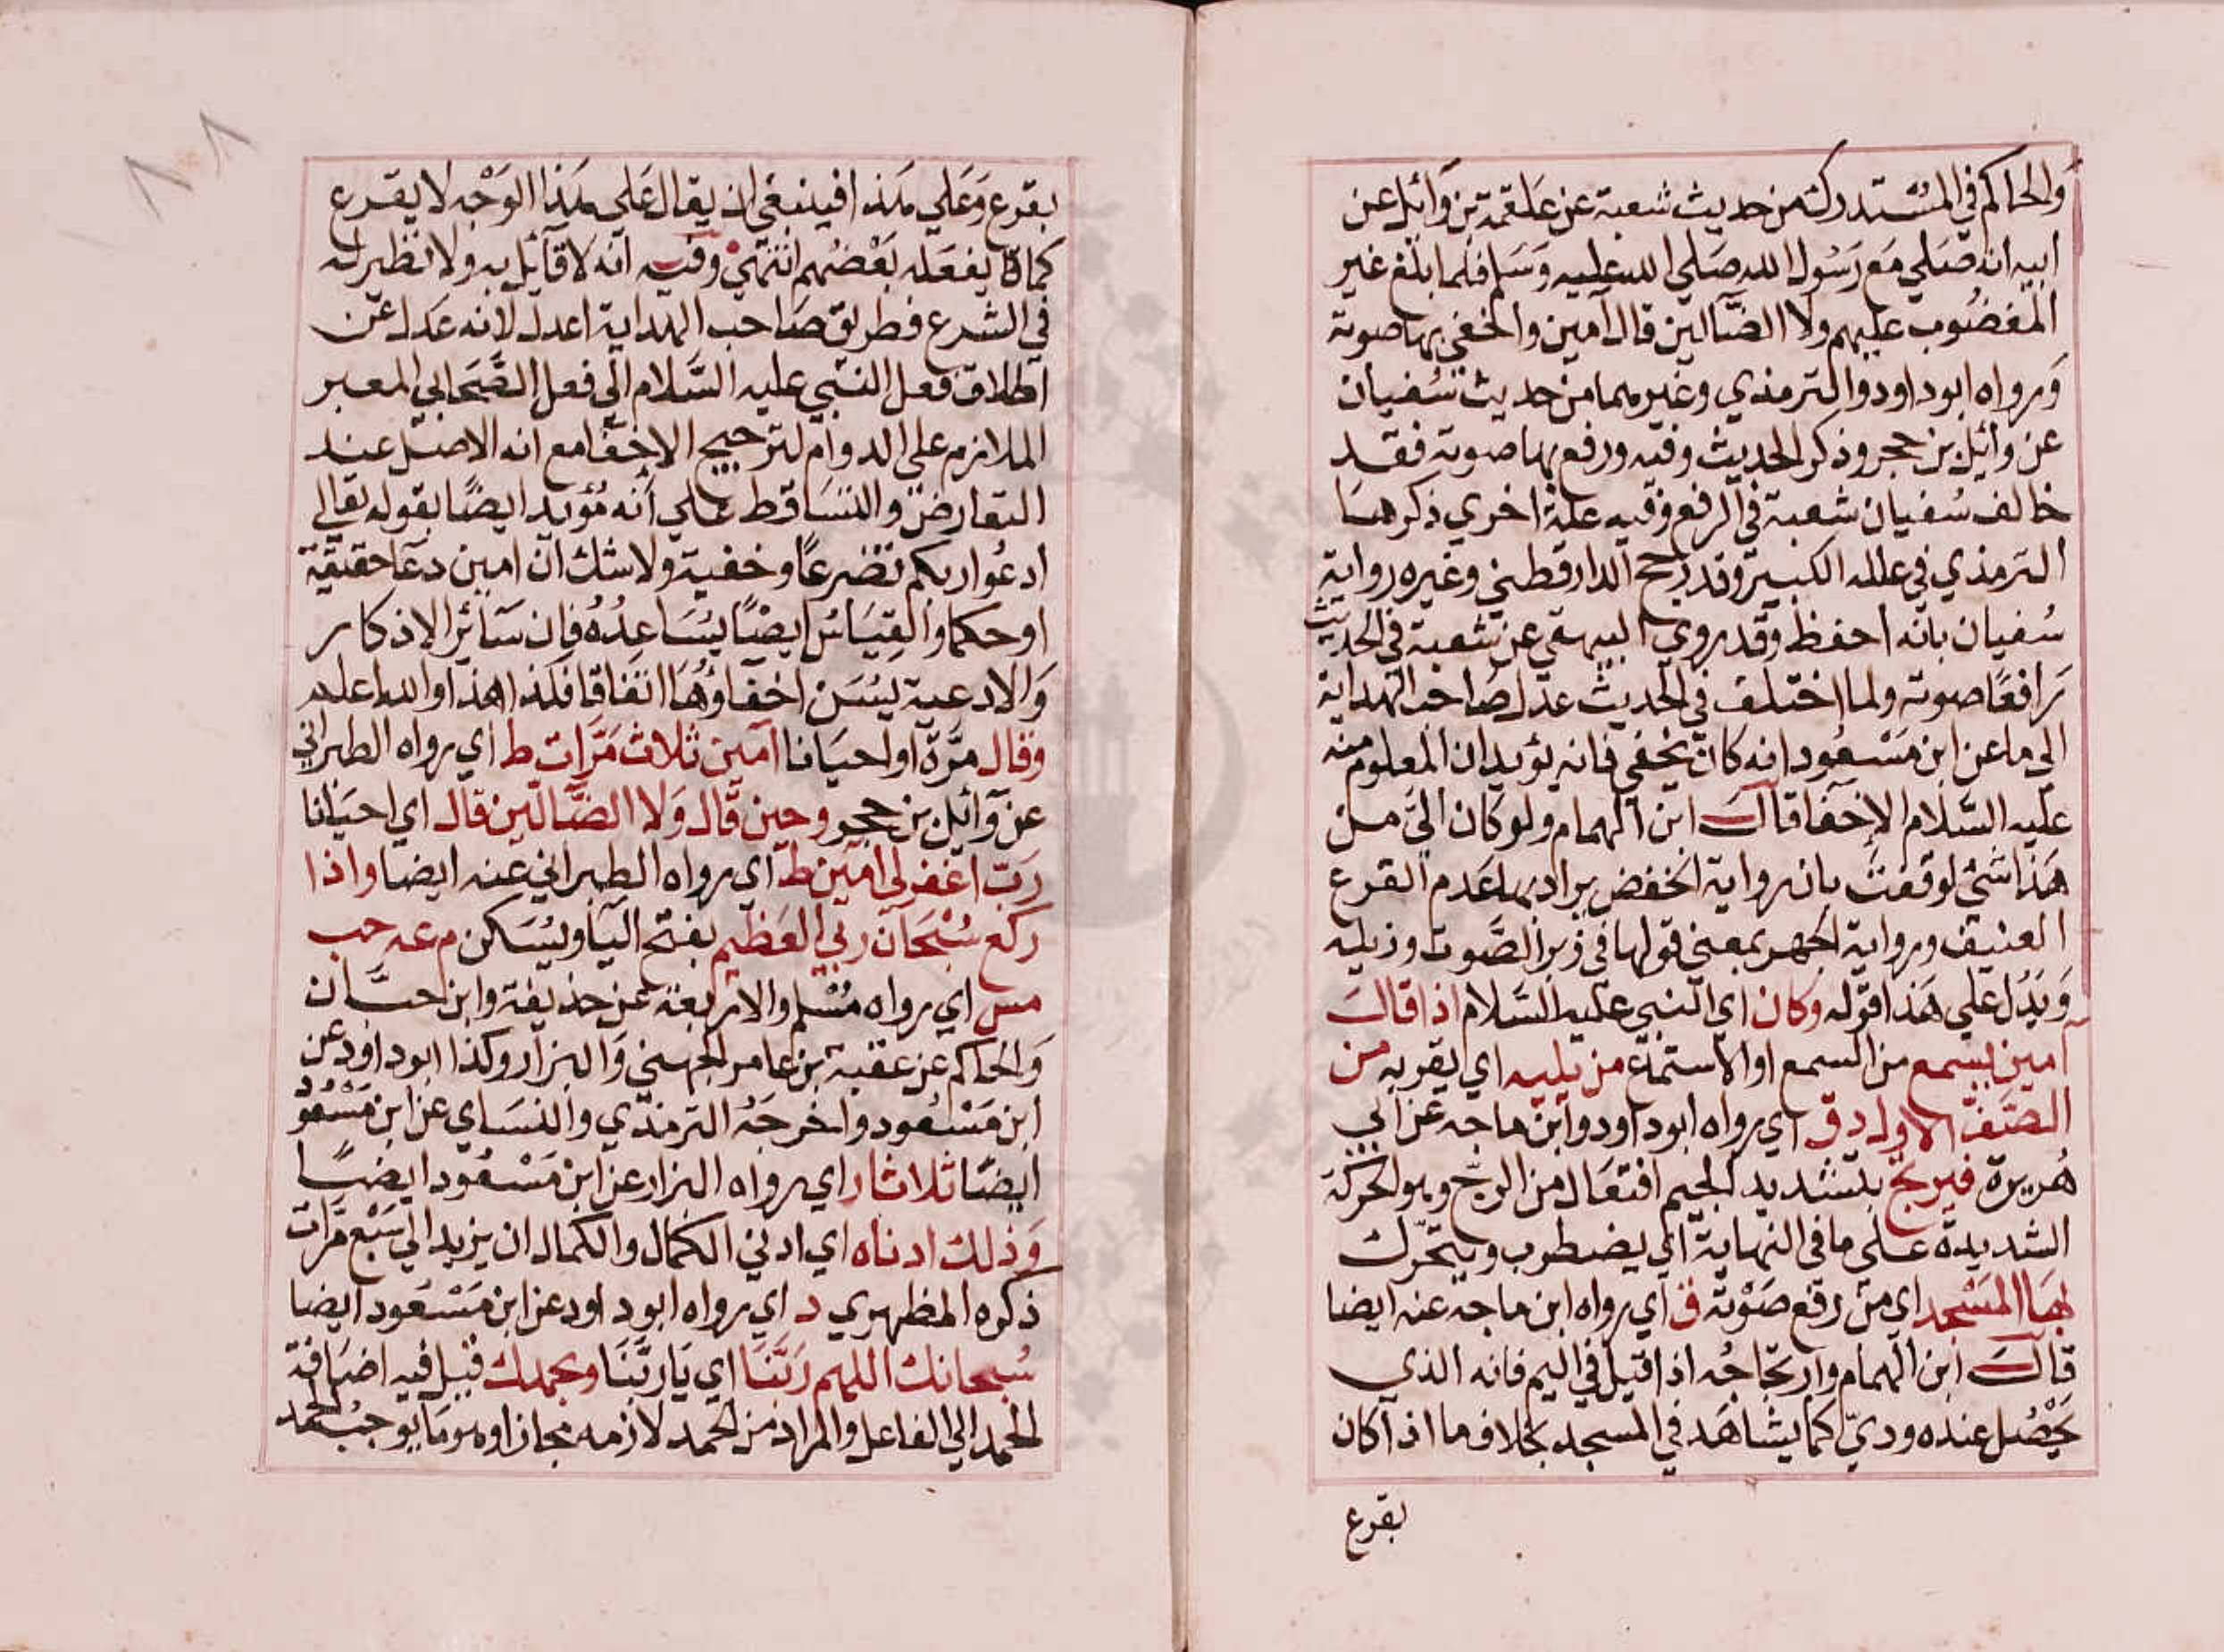 والحاكم في المستدرك من حديث شعبة عن علقمة بن وائل عن
ابيه انه صلي مع رسول الله صلي الله عليه وسلم فلما بلغ غير
المغضوب عليهم ولا الضالين قال آمين واخفي بها صوته
ورواه ابوداود والترمذي وغيرهما من حديث سفيان
عن وائل بن حجر وذكر الحديث وفيه ورفع بها صوته فقد
خالف سفيان شعبة في الرفع وفيه علة اخري ذكرها
الترمذي في علله الكبير وقد رجح الدارقطني وغيره رواية
سفيان بانه احفظ وقد روي البيهقي عن شعبة في الحديث
رافعا صوته ولما اختلف في الحديث عدل صاحب الهداية
الي ما عن ابن مسعود انه كان يخفي فانه يؤيد ان المعلوم منه
عليه السلام الاخفا قال ابن الهمام ولو كان الي من
هذا شئ لوفقت بان رواية الخفض يراد بها عدم القرع
العنيف ورواية الجهر بمعني قولها في زبر الصوت وذيله
ويدل علي هذا قوله وكان اي النبي عليه السلام اذا قال
آمين يسمع من السمع او الاستماع من يليه اي يقربه من
الصف الاول د ق اي رواه ابوداود وابن ماجه عن ابي
هريرة فيرتج بتشديد الجيم افتعال من الرج وهو الحركة
الشديدة علي ما في النهاية اي يضطرب ويتحرك
بها المسجد اي من رفع صوته ق اي رواه ابن ماجه عنه ايضا
قال ابن الهمام وارتجاجه اذا قيل في اليم فانه الذي
يحصل عنده ودي كما يشاهد في المسجد بخلاف ما اذا كان
بقرع
١٨١
بقرع وعلي هذا فينبغي ان يقال علي هذا الوجه لا يقرع
كما يفعله بعضهم انتهي وفيه انه لا قائل به ولا نظير له
في الشرع فطريق صاحب الهداية اعدل لانه عدل عن
اطلاق فعل النبي عليه السلام الي فعل الصحابي المعبر
الملازم علي الدوام لترجيح الاخفا مع انه الاصل عند
التعارض والتساقط علي انه مؤيد ايضا بقوله تعالي
ادعوا ربكم تضرعا وخفية ولا شك ان امين دعا حقيقة
او حكما والقياس ايضا يساعده فان سائر الاذكار
والادعية يسن اخفاؤها اتفاقا فكذا هذا والله اعلم
وقال مرة او احيانا آمين ثلاث مرات ط اي رواه الطبراني
عن وائل بن حجر وحين قال ولا الضالين قال اي احيانا
رب اغفر لي امين ط اي رواه الطبراني عنه ايضا واذا
ركع سبحان ربي العظيم بفتح اليا ويسكن م عه حب
مس اي رواه مسلم والاربعة عن حذيفة وابن حبان
والحاكم عن عقبة بن عامر الجهني والبزار وكذا ابوداود عن
ابن مسعود واخرجه الترمذي والنساي عن ابن مسعود
ايضا ثلاثا ر اي رواه البزار عن ابن مسعود ايضا
وذلك ادناه اي ادني الكمال والكمال ان يزيد الي سبع مرات
ذكره المظهري د اي رواه ابوداود عن ابن مسعود ايضا
سبحانك اللهم ربنا اي يا ربنا وبحمدك قيل فيه اضافة
الحمد الي الفاعل والمراد من الحمد لازمه مجازا وهو ما يوجب الحمد